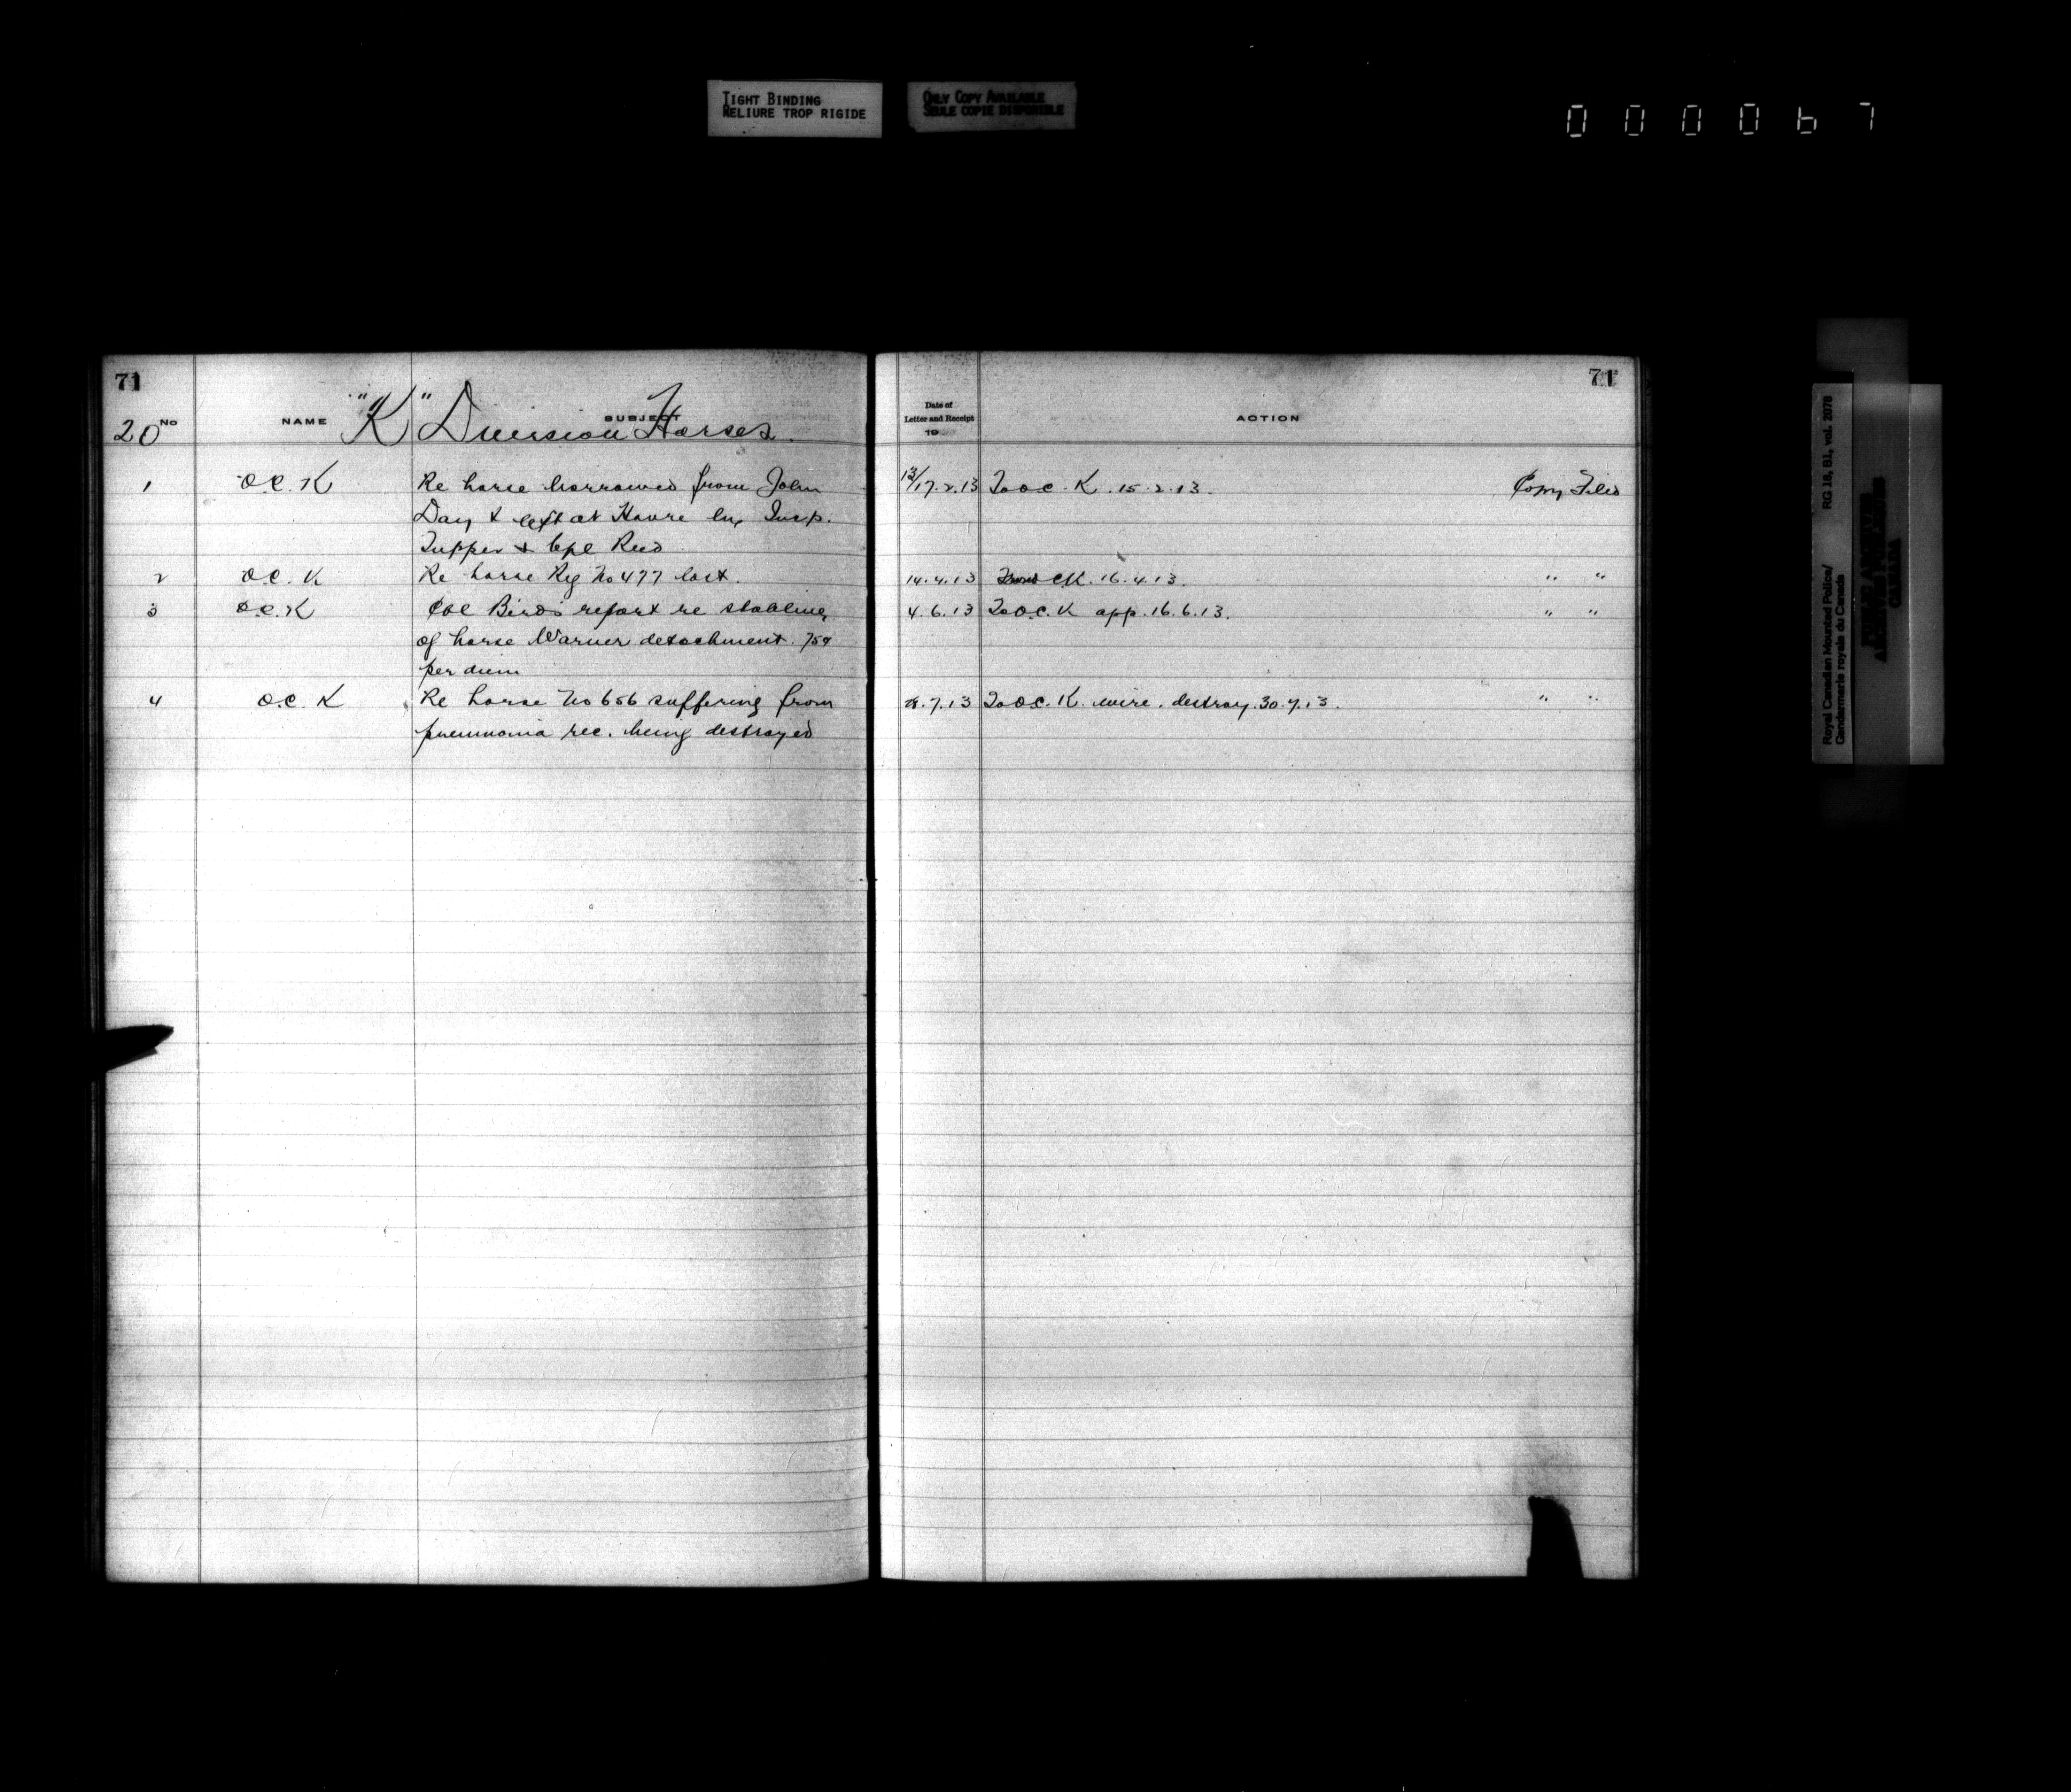 TIGHT BINDING
RELIURE TROP RIGIDE
ONLY COPY AVAILABLE
SEULE COPIE DISPONIBLE
000067
71
20 No NAME SUBJECT
"K" Division Horses.
1 O.C. K Re horse borrowed from John
Day & left at Havre by Insp.
Tupper & Cpl Reed
2 O.C. K Re horse Reg No 477 lost.
3 O.C. K Cpl Birds report re stabling
of horse Warner detachment. 75¢
per diem
4 O.C. K Re horse No 656 suffering from
pneumonia rec. being destroyed
71
Date of
Letter and Receipt
19
ACTION
13/17.2.13 To O.C. K. 15.2.13. Copy Filed
14.4.13 CK. 16.4.13. " "
4.6.13 To O.C. K app. 16.6.13. " "
28.7.13 To O.C. K. wire. destroy. 30.7.13. " "
Royal Canadian Mounted Police/ RG 18, B1, vol. 2078
Gendarmerie royale du Canada
CANADA